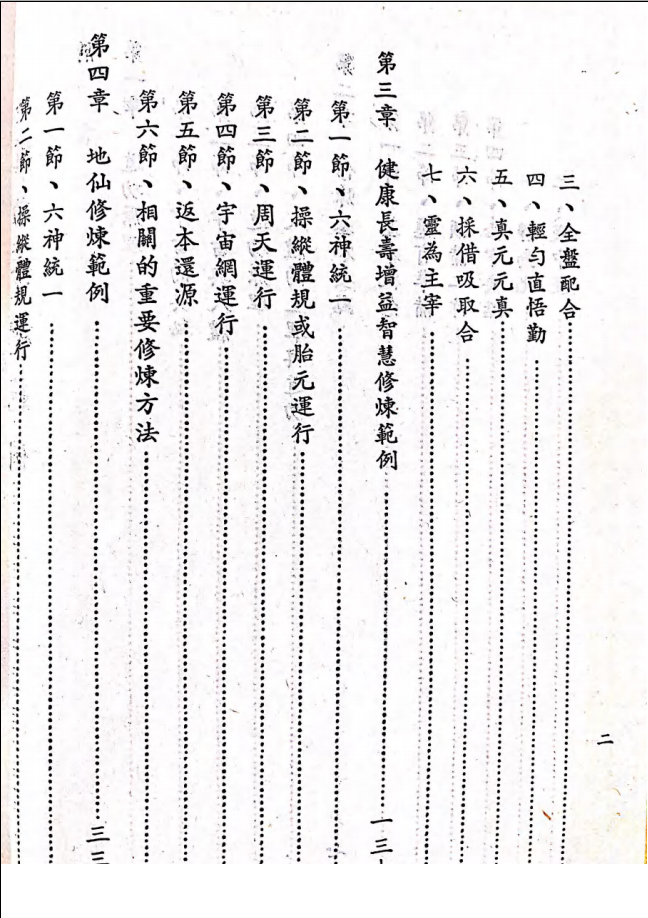 三、全盤配合
四、輕勻直悟勤
五、真元元真
六、採借吸取合
七、靈為主宰
第三章 健康長壽增益智慧修煉範例 一三
第一節、六神統一
第二節、操縱體規或胎元運行
第三節、周天運行
第四節、宇宙網運行
第五節、返本還源
第六節、相關的重要修煉方法
第四章 地仙修煉範例 三三
第一節、六神統一
第二節、操縱體規運行
二